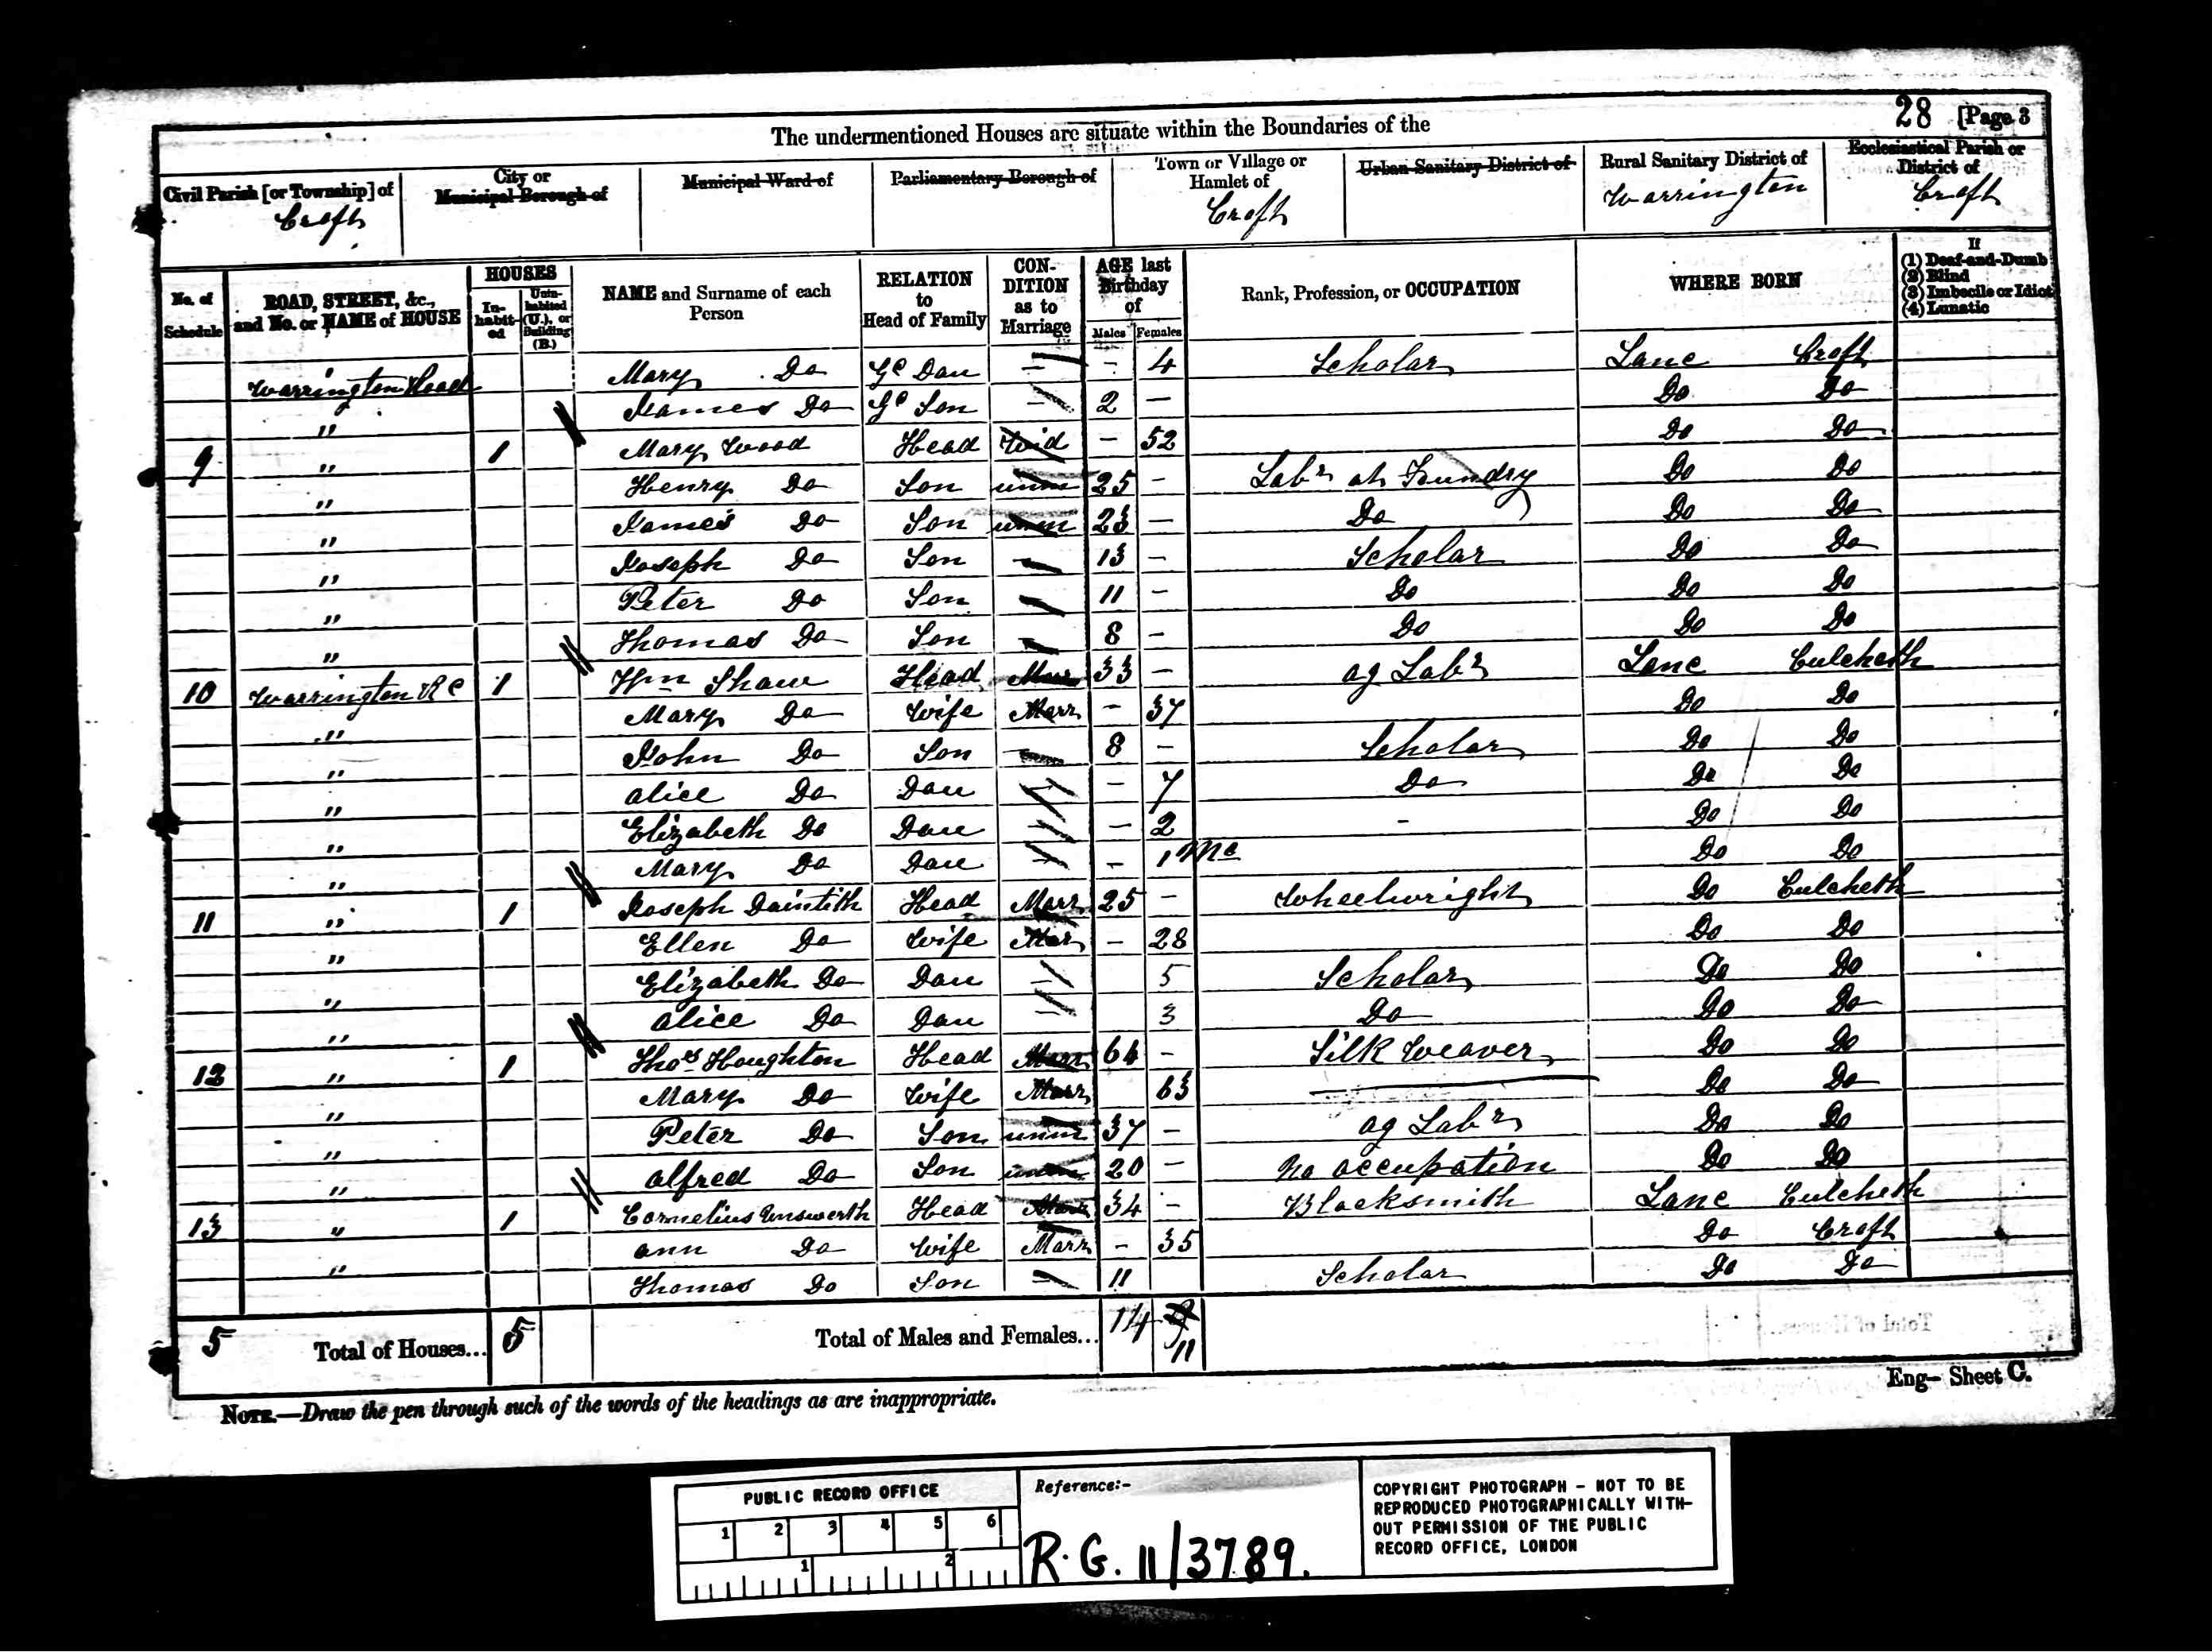 28 [Page 3
The undermentioned Houses are situate within the Boundaries of the
Civil Parish [or Township] of
Croft
City or Municipal Borough of
Municipal Ward of
Parliamentary Borough of
Town or Village or Hamlet of
Croft
Urban Sanitary District of
Rural Sanitary District of
Warrington
Ecclesiastical Parish or District of
Croft
No. of Schedule
ROAD, STREET, &c., and No. or NAME of HOUSE
HOUSES
In-habit-ed
Unin-habited (U.), or Building (B.)
NAME and Surname of each Person
RELATION to Head of Family
CON-DITION as to Marriage
AGE last Birthday of
Males Females
Rank, Profession, or OCCUPATION
WHERE BORN
If
(1) Deaf-and-Dumb
(2) Blind
(3) Imbecile or Idiot
(4) Lunatic
Warrington Road Mary Do Gd Dau – – 4 Scholar Lanc Croft
" James Do Gd Son – 2 – Do Do
9 " 1 Mary Wood Head Wid – 52 Do Do
" Henry Do Son unm 25 – Labr at Foundry Do Do
" James Do Son unm 23 – Do Do Do
" Joseph Do Son – 13 – Scholar Do Do
" Peter Do Son – 11 – Do Do Do
" Thomas Do Son – 8 – Do Do Do
10 Warrington Rd 1 Wm Shaw Head Marr 33 – ag Labr Lanc Culcheth
" Mary Do Wife Marr – 37 Do Do
" John Do Son – 8 – Scholar Do Do
" Alice Do Dau – – 7 Do Do Do
" Elizabeth Do Dau – – 2 – Do Do
" Mary Do Dau – – 1 Mo Do Do
11 " 1 Joseph Daintith Head Marr 25 – Wheelwright Do Culcheth
" Ellen Do Wife Mar – 28 Do Do
" Elizabeth Do Dau – 5 Scholar Do Do
" Alice Do Dau – 3 Do Do Do
12 " 1 Thos Houghton Head Marr 64 – Silk Weaver Do Do
" Mary Do Wife Marr 63 Do Do
" Peter Do Son unm 37 – ag Labr Do Do
" Alfred Do Son unm 20 – No occupation Do Do
13 " 1 Cornelius Unsworth Head Marr 34 – Blacksmith Lanc Culcheth
" Ann Do Wife Marr – 35 Do Croft
Thomas Do Son – 11 Scholar Do Do
5 Total of Houses... 5 Total of Males and Females... 14 11
Eng– Sheet C.
NOTE.—Draw the pen through such of the words of the headings as are inappropriate.
PUBLIC RECORD OFFICE
1 2 3 4 5 6
1 2
Reference:-
R.G. 11/3789.
COPYRIGHT PHOTOGRAPH – NOT TO BE
REPRODUCED PHOTOGRAPHICALLY WITH-
OUT PERMISSION OF THE PUBLIC
RECORD OFFICE, LONDON